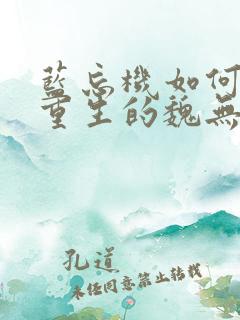 藍忘機如何
重生的魏無
孔道
未任同意禁止转载